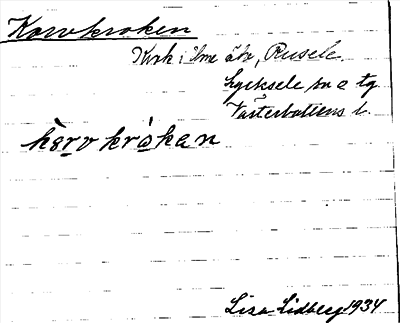 Korvkroken
Krok i Ume älv, Rusele
Lycksele sn o tg
Västerbottens l.
kòrv krò̀kan
Lisa Lidberg 1934